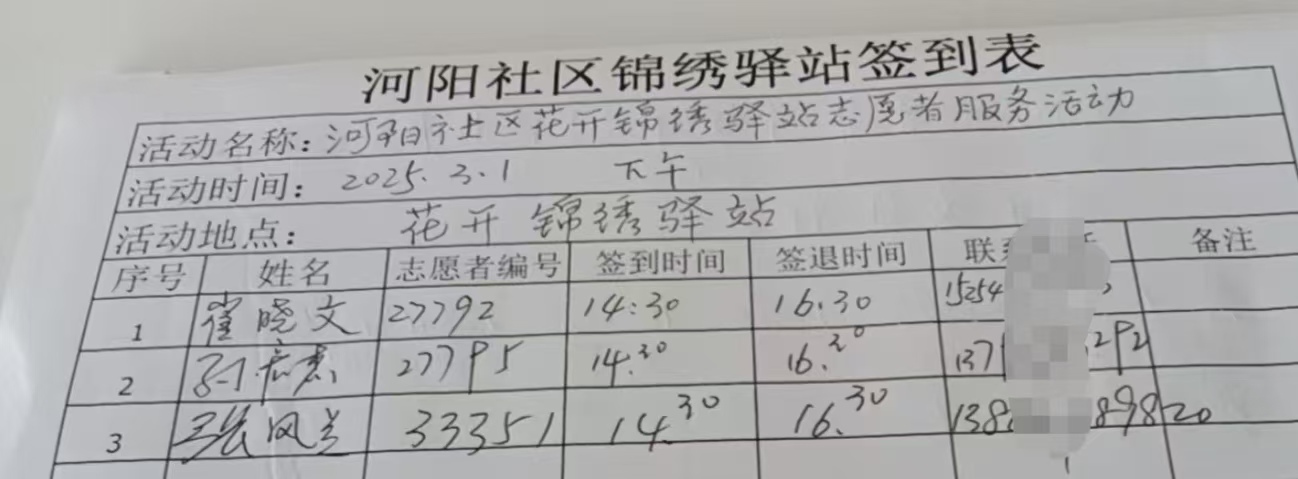 河阳社区锦绣驿站签到表
活动名称：河阳社区花开锦绣驿站志愿者服务活动
活动时间： 2025.3.1 下午
活动地点： 花开锦绣驿站
序号 姓名 志愿者编号 签到时间 签退时间 联系 备注
1 崔晓文 27792 14:30 16.30 15254
2 27795 14.30 16.30 137 292
3 张风兰 33351 14.30 16.30 138 89820